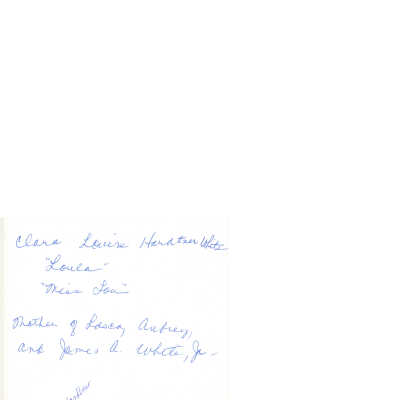 Clara Louise Hardtner White
"Loula"
"Miss Lou"
Mother of Losca, Aubrey,
and James A. White, Jr.